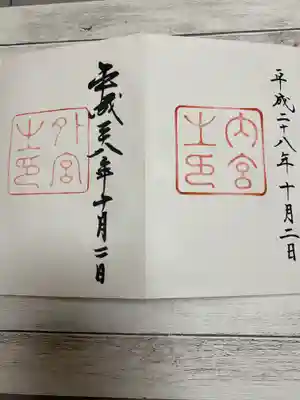 平成二十八年十月二日
内宮之印
平成廿八年十月二日
外宮之印